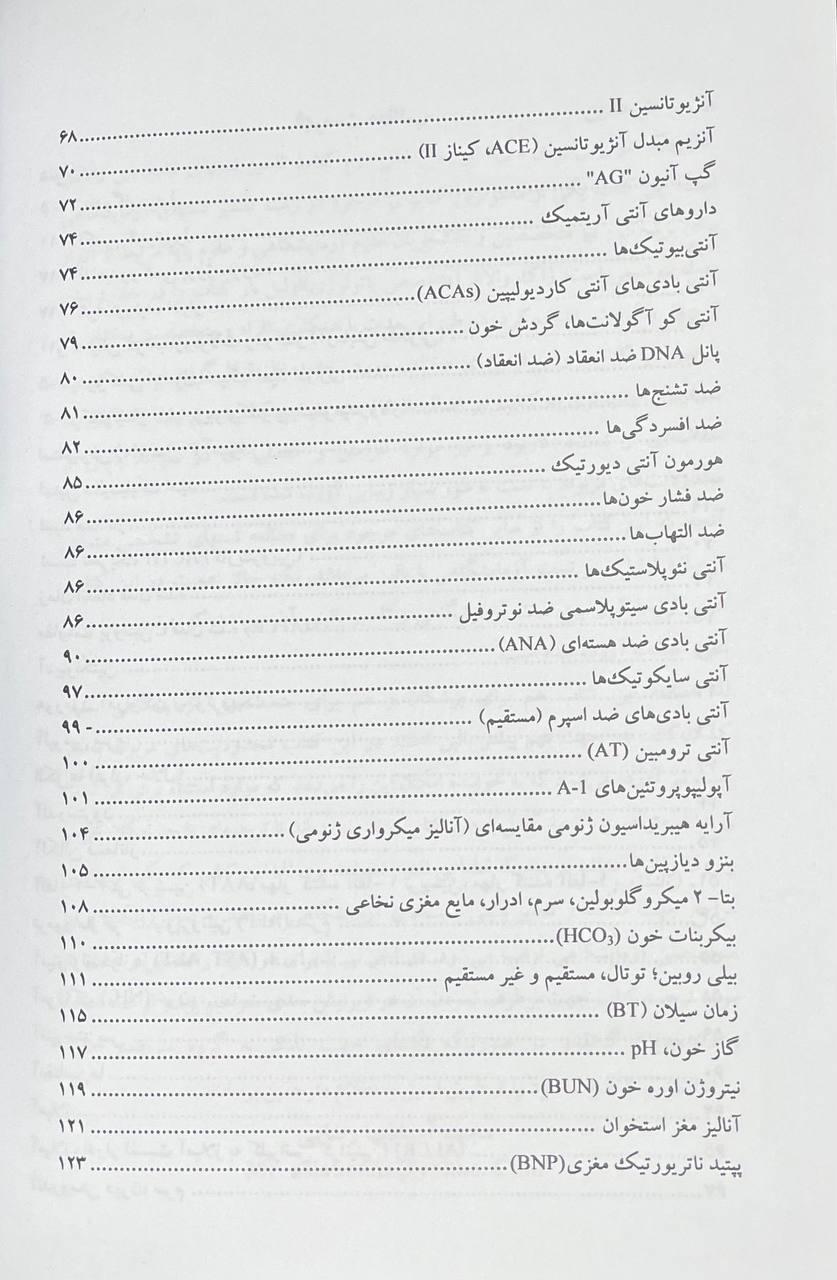 آنژیوتانسین II ........ ۶۸
آنزیم مبدل آنژیوتانسین (ACE، کیناز II) ........ ۷۰
گپ آنیون "AG" ........ ۷۲
داروهای آنتی آریتمیک ........ ۷۴
آنتی‌بیوتیک‌ها ........ ۷۴
آنتی بادی‌های آنتی کاردیولیپین (ACAs) ........ ۷۶
آنتی کو آگولانت‌ها، گردش خون ........ ۷۹
پانل DNA ضد انعقاد (ضد انعقاد) ........ ۸۰
ضد تشنج‌ها ........ ۸۱
ضد افسردگی‌ها ........ ۸۲
هورمون آنتی دیورتیک ........ ۸۵
ضد فشار خون‌ها ........ ۸۶
ضد التهاب‌ها ........ ۸۶
آنتی نئوپلاستیک‌ها ........ ۸۶
آنتی بادی سیتوپلاسمی ضد نوتروفیل ........ ۸۶
آنتی بادی ضد هسته‌ای (ANA) ........ ۹۰
آنتی سایکوتیک‌ها ........ ۹۷
آنتی بادی‌های ضد اسپرم (مستقیم) ........ - ۹۹
آنتی ترومبین (AT) ........ ۱۰۰
آپولیپوپروتئین‌های A-1 ........ ۱۰۱
آرایه هیبریداسیون ژنومی مقایسه‌ای (آنالیز میکرواری ژنومی) ........ ۱۰۴
بنزو دیازپین‌ها ........ ۱۰۵
بتا- ۲ میکروگلوبولین، سرم، ادرار، مایع مغزی نخاعی ........ ۱۰۸
بیکربنات خون (HCO₃) ........ ۱۱۰
بیلی روبین؛ توتال، مستقیم و غیر مستقیم ........ ۱۱۱
زمان سیلان (BT) ........ ۱۱۵
گاز خون، pH ........ ۱۱۷
نیتروژن اوره خون (BUN) ........ ۱۱۹
آنالیز مغز استخوان ........ ۱۲۱
پپتید ناتریورتیک مغزی(BNP) ........ ۱۲۳